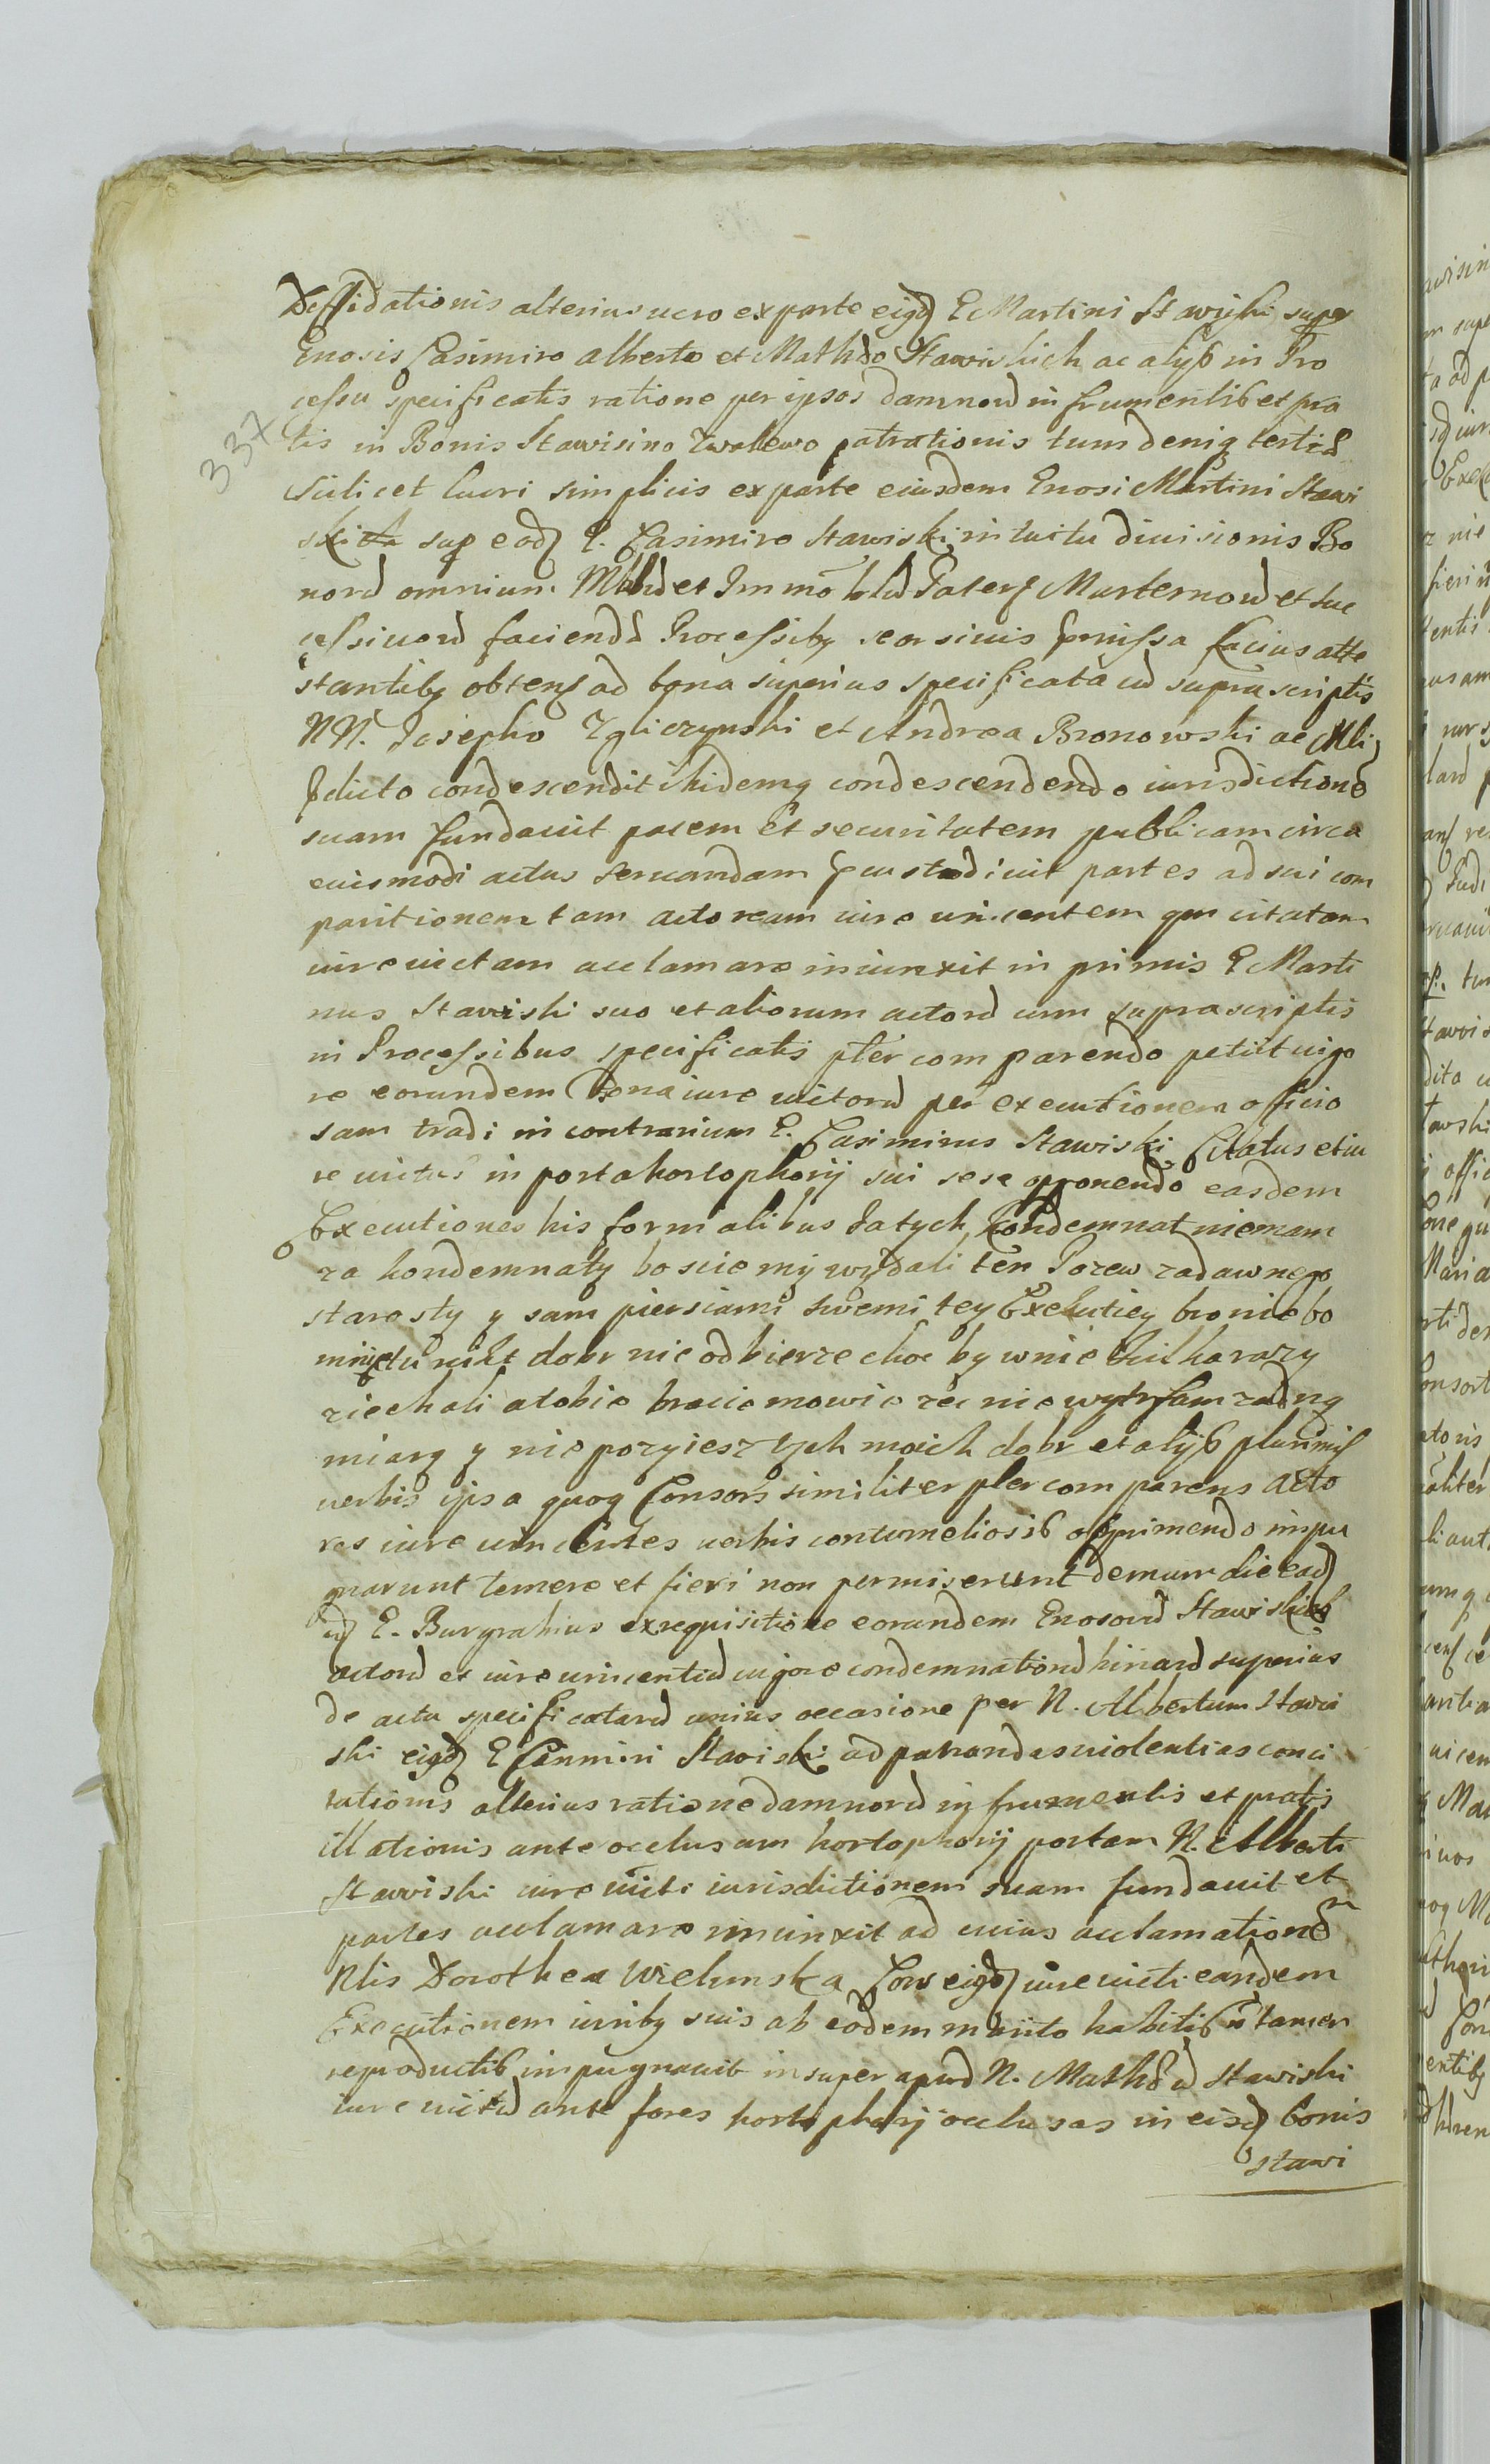 337
Deffidationis alterius uero ex parte eiqd E Martini Stawiski super
Enosis Casimiro Alberto et Mathęo Stawiskich ac alijs in Pro
cessu specificatis ratione per ipsos damnorum in frumentis et pra
tis in Bonis Stawisino Zwalewo patrationis tum deniq tertię
Scilicet lucri simplicis ex parte eiusdem Enosi Martini Stawi
ski sup eod E. Casimiro Stawiski intuitu diuisionis Bo
norum omnium Mblium et Immoblium Paterq Maternorum et suc
cessiuorum faciendę Processiby seorsiuis pmissa facius atte
stantiby obtens ad bona superius specificata cum suprascriptis
NN. Josepho Zgliczynski et Andrea Bronowski ac Mli
pdicto condescendit ibidemq condescendendo iurisdictionem
suam fundauit pacem et securitatem publicam circa
euismodi actus seruandam pcustodiuit partes ad sui com
paritionem tam actoream iure uincentem qm citatam
iure uictam acclamare iniunxit in primis E Marti
nus Stawiski suo et aliorum actorum cum suprascriptis
in Processibus specificatis pter comparendo petiit uigo
re eorundem Bona iure uictorum per executionem officio
sam tradi in contrarium E. Casimirus Stawiski Citatus et iu
re uictus in porta hortophorij sui sese opponendo easdem
Executiones his formalibus Ja tych Kondemnat nie mam
za kondemnaty bo scie my wydali ten Pozew za dawnego
starosty y sam piersiami swemi tey Exekutiey bronie bo
mnie tu nikt dobr nie odbierze choc by w nie kilka razy
ziechali a tobie bracie mowie ze nie wytrsam zadną
miarą y nie pozyiesz tych moich dobr et alijs plurimis
uerbis ipsa quoq Consors similiter pter comparens acto
res iure uincentes uerbis contumeliosis opprimendo impu
gnarunt temere et fieri non permiserunt demum die ead
id E. Burgrabius ex requisitione eorundem Enosorum Stawiskich
actorum et iure uincentium uigore condemnationum binarum superius
de actu specificatarum unius occasione per N. Albertum Stawi
ski eiqd E Casimiri Stawiski ad patrandas uiolentias conci
tationis alterius ratione damnorum in frumentis et pratis
illationis ante occlusam hortophorij portam N. Alberti
Stawiski iure uicti iurisdictionem suam fundauit et
partes acclamare iniunxit ad cuius acclamationem
Nlis Dorothea Wielunska Cons eiqd iure uicti eandem
Executionem iuriby suis ab eodem marito habitis n tamen
reproductis impugnauit insuper apud N. Mathęum Stawiski
iure uictum ante fores hortophorij occlusas in eisd bonis
Stawi